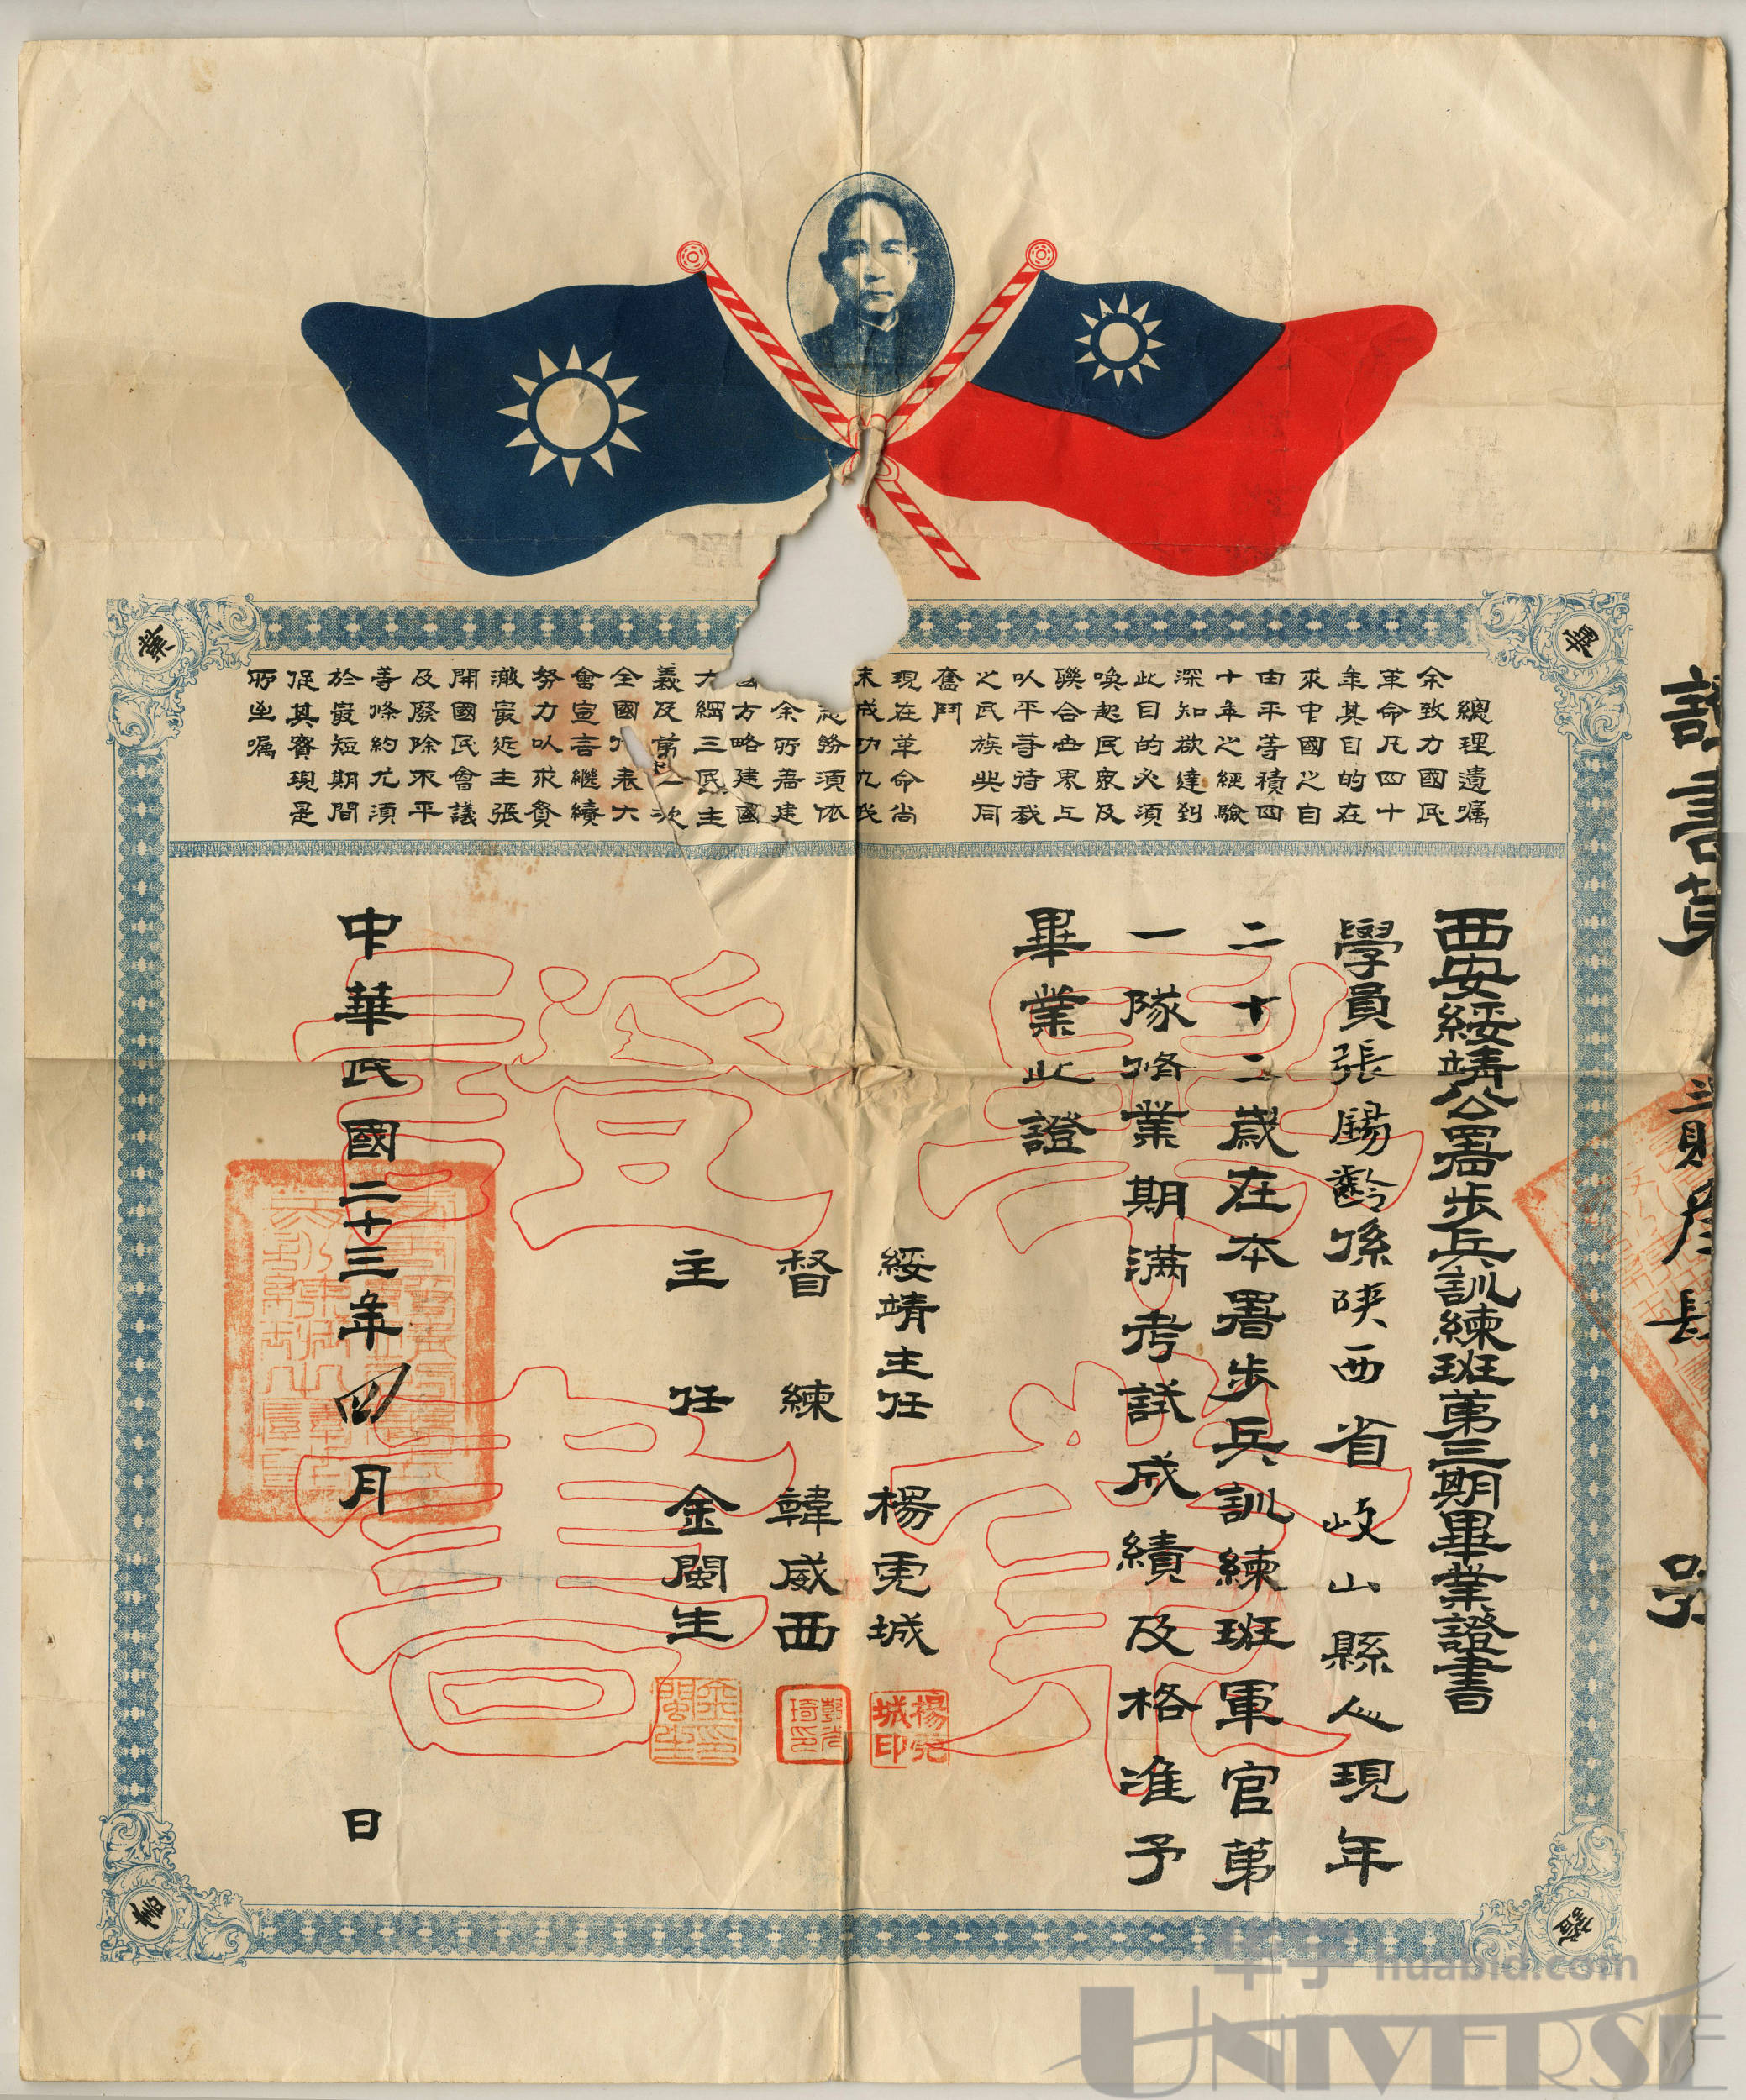 總理遺囑
余致力國民
革命凡四十
年其目的在
求中國之自
由平等積四
十年之經驗
深知欲達到
此目的必須
喚起民眾及
聯合世界上
以平等待我
之民族共同
奮鬥
現在革命尚
未成功凡我
志務須依
余所著建
國方略建國
大綱三民主
義及第一次
全國代表大
會宣言繼續
努力以求貫
澈最近主張
開國民會議
及廢除不平
等條約尤須
於最短期間
促其實現是
所至囑
西安綏靖公署步兵訓練班第三期畢業證書
學員張錫齡係陝西省岐山縣人現年
二十二歲在本署步兵訓練班軍官第
一隊修業期滿考試成績及格准予
畢業此證
綏靖主任 楊虎城
楊虎城印
督練 韓威西
主任 金閩生
金印閩生
中華民國二十三年四月 日
畢
業
證
書
畢業證書
華宇 huabid.com
UNIVERSE